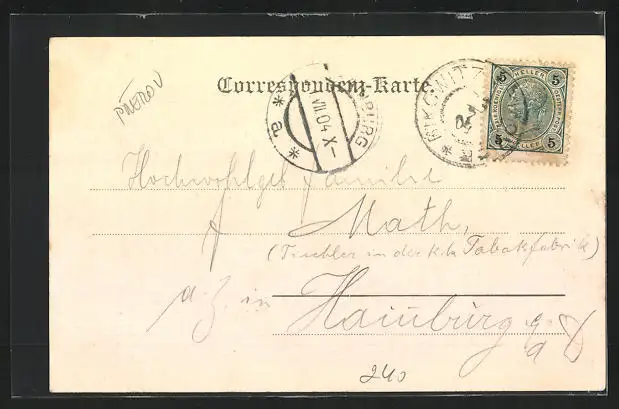 PŘEROV
Correspondenz-Karte.
VII 04 X-
BURG
* a *
KOWITZ
5 HELLER 5
5 HELLER 5
Hochwohlgeb Familie
Math,
(Tischler in der k.k. Tabakfabrik)
in
Hainburg
240